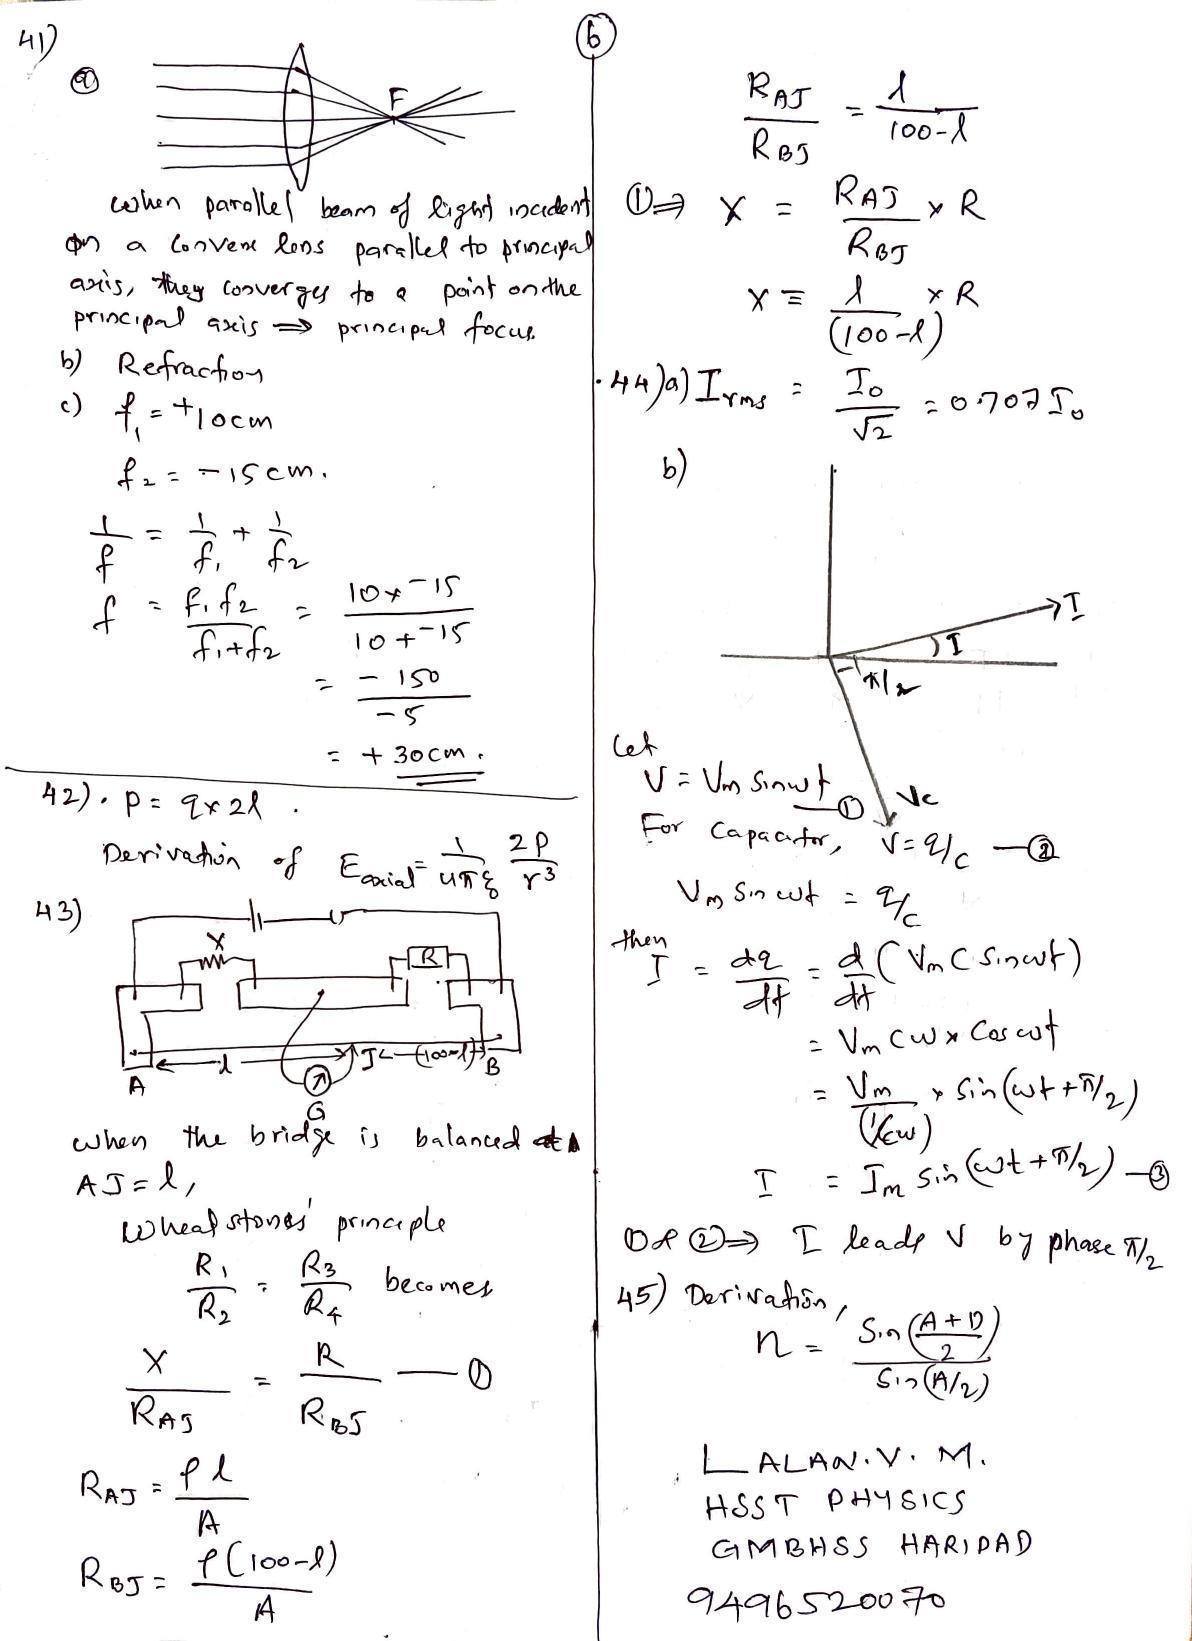 6
41)
a)
F
When parallel beam of light incident
on a convex lens parallel to principal
axis, they converges to a point on the
principal axis ⇒ principal focus.
b) Refraction
c) f₁ = +10cm
f₂ = -15cm.
1/f = 1/f₁ + 1/f₂
f = f₁f₂/(f₁+f₂) = (10×-15)/(10+-15)
= -150/-5
= +30cm.
42). P = q×2l.
Derivation of Eaxial = 1/4πε₀ 2P/r³
43)
X
R
A l J (100-l) B
G
When the bridge is balanced at
AJ = l,
Wheatstones' principle
R₁/R₂ = R₃/R₄ becomes
X/R_AJ = R/R_BJ —①
R_AJ = ρl/A
R_BJ = ρ(100-l)/A
R_AJ/R_BJ = l/(100-l)
①⇒ X = R_AJ/R_BJ × R
X = l/(100-l) × R
44)a) Irms = I₀/√2 = 0.707 I₀
b)
I
I
π/2
Vc
Let
V = Vm Sinωt —①
For Capacitor, V = q/c —②
Vm Sin ωt = q/c
then
I = dq/dt = d/dt (Vm C sinωt)
= Vm Cω × Cos ωt
= Vm/(1/Cω) × Sin(ωt + π/2)
I = Im Sin(ωt + π/2) —③
① & ②⇒ I leads V by phase π/2
45) Derivation,
n = Sin((A+D)/2)/Sin(A/2)
LALAN.V.M.
HSST PHYSICS
GMBHSS HARIPAD
9496520070